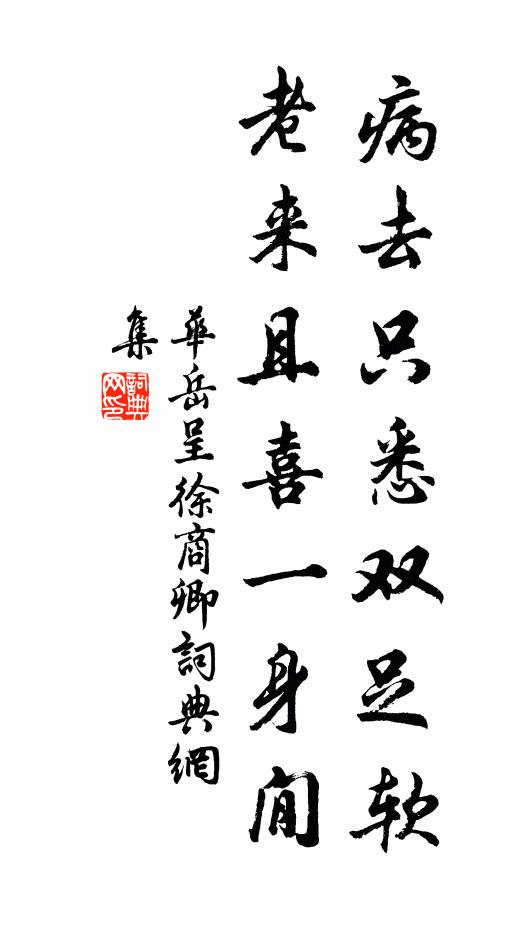 病去只悉双足软
老来且喜一身閒
華岳呈徐商卿詞典網
集
詞典
网印